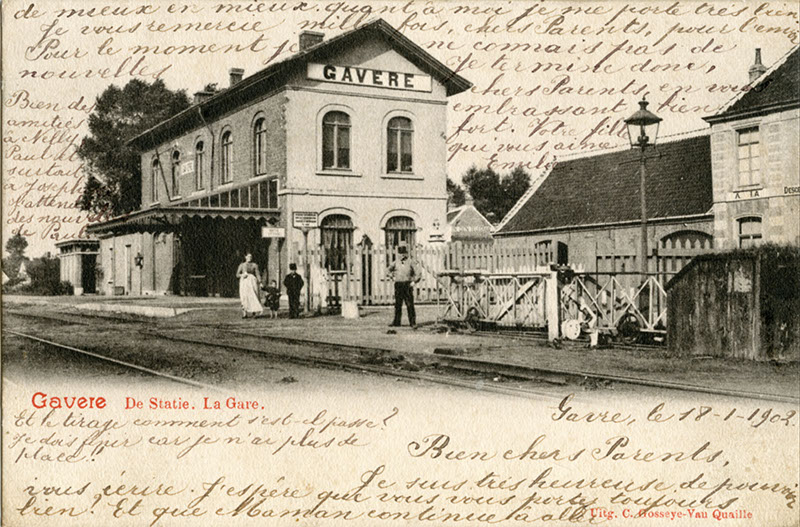 de mieux en mieux. quant à moi je me porte très bien.
Je vous remercie mille fois, chers Parents, pour l'envoi
Pour le moment je ne connais pas de
nouvelles. Je termine donc,
chers Parents en vous
embrassant bien
fort. Votre fille
qui vous aime
Bien des
amitiés
à Nelly
Paul et
surtout
à Joseph
J'attends
des nouv
GAVERE
A LA
DESC
Gavere De Statie. La Gare.
Et le tirage comment s'est-il passé?
Je dois finir car je n'ai plus de
place!!
Gavre, le 18-1-1902
Bien chers Parents,
Je suis très heureuse de pouvoir
vous écrire. J'espère que vous vous portez toujours
bien. Et que Maman continue à aller
Uitg. C. Gosseye-Van Quaille